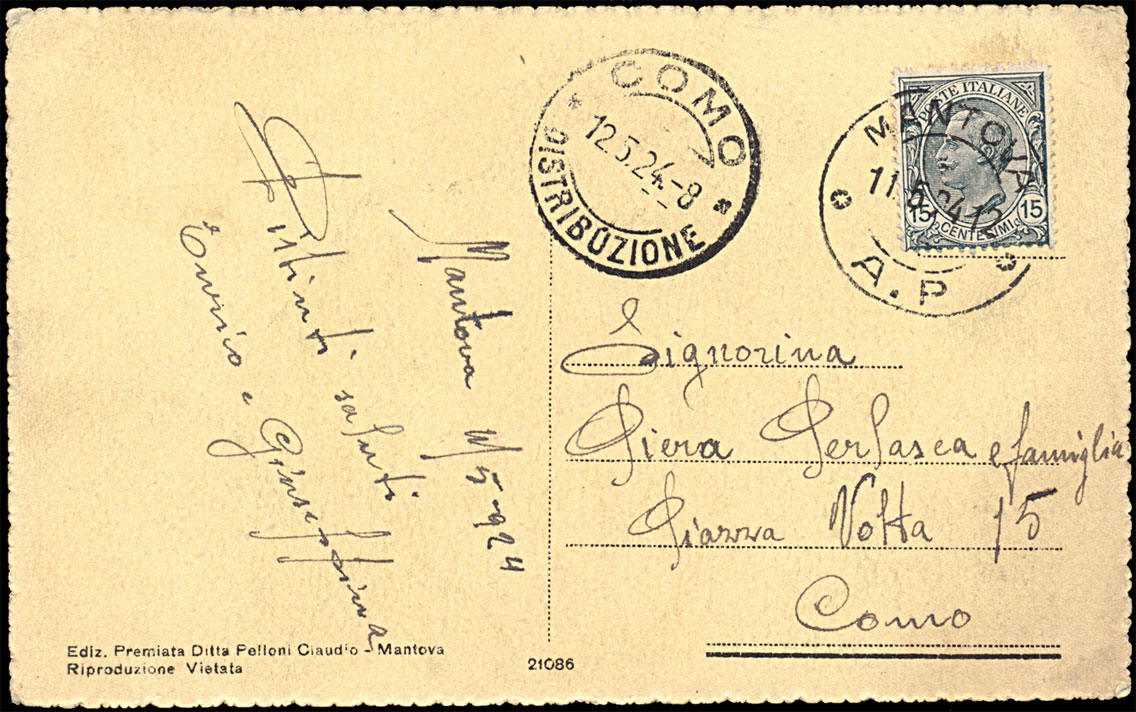 Mantova 11/5-924
Distinti saluti
Enrico e Giuseppina
COMO
12.5.24.-8
DISTRIBUZIONE
POSTE ITALIANE
15 15
CENTESIMI
MANTOVA
11.5.24 12
A.P
Signorina
Piera Perlasca e famiglia
Piazza Volta 15
Como
Ediz. Premiata Ditta Pelloni Claudio - Mantova
Riproduzione Vietata
21086